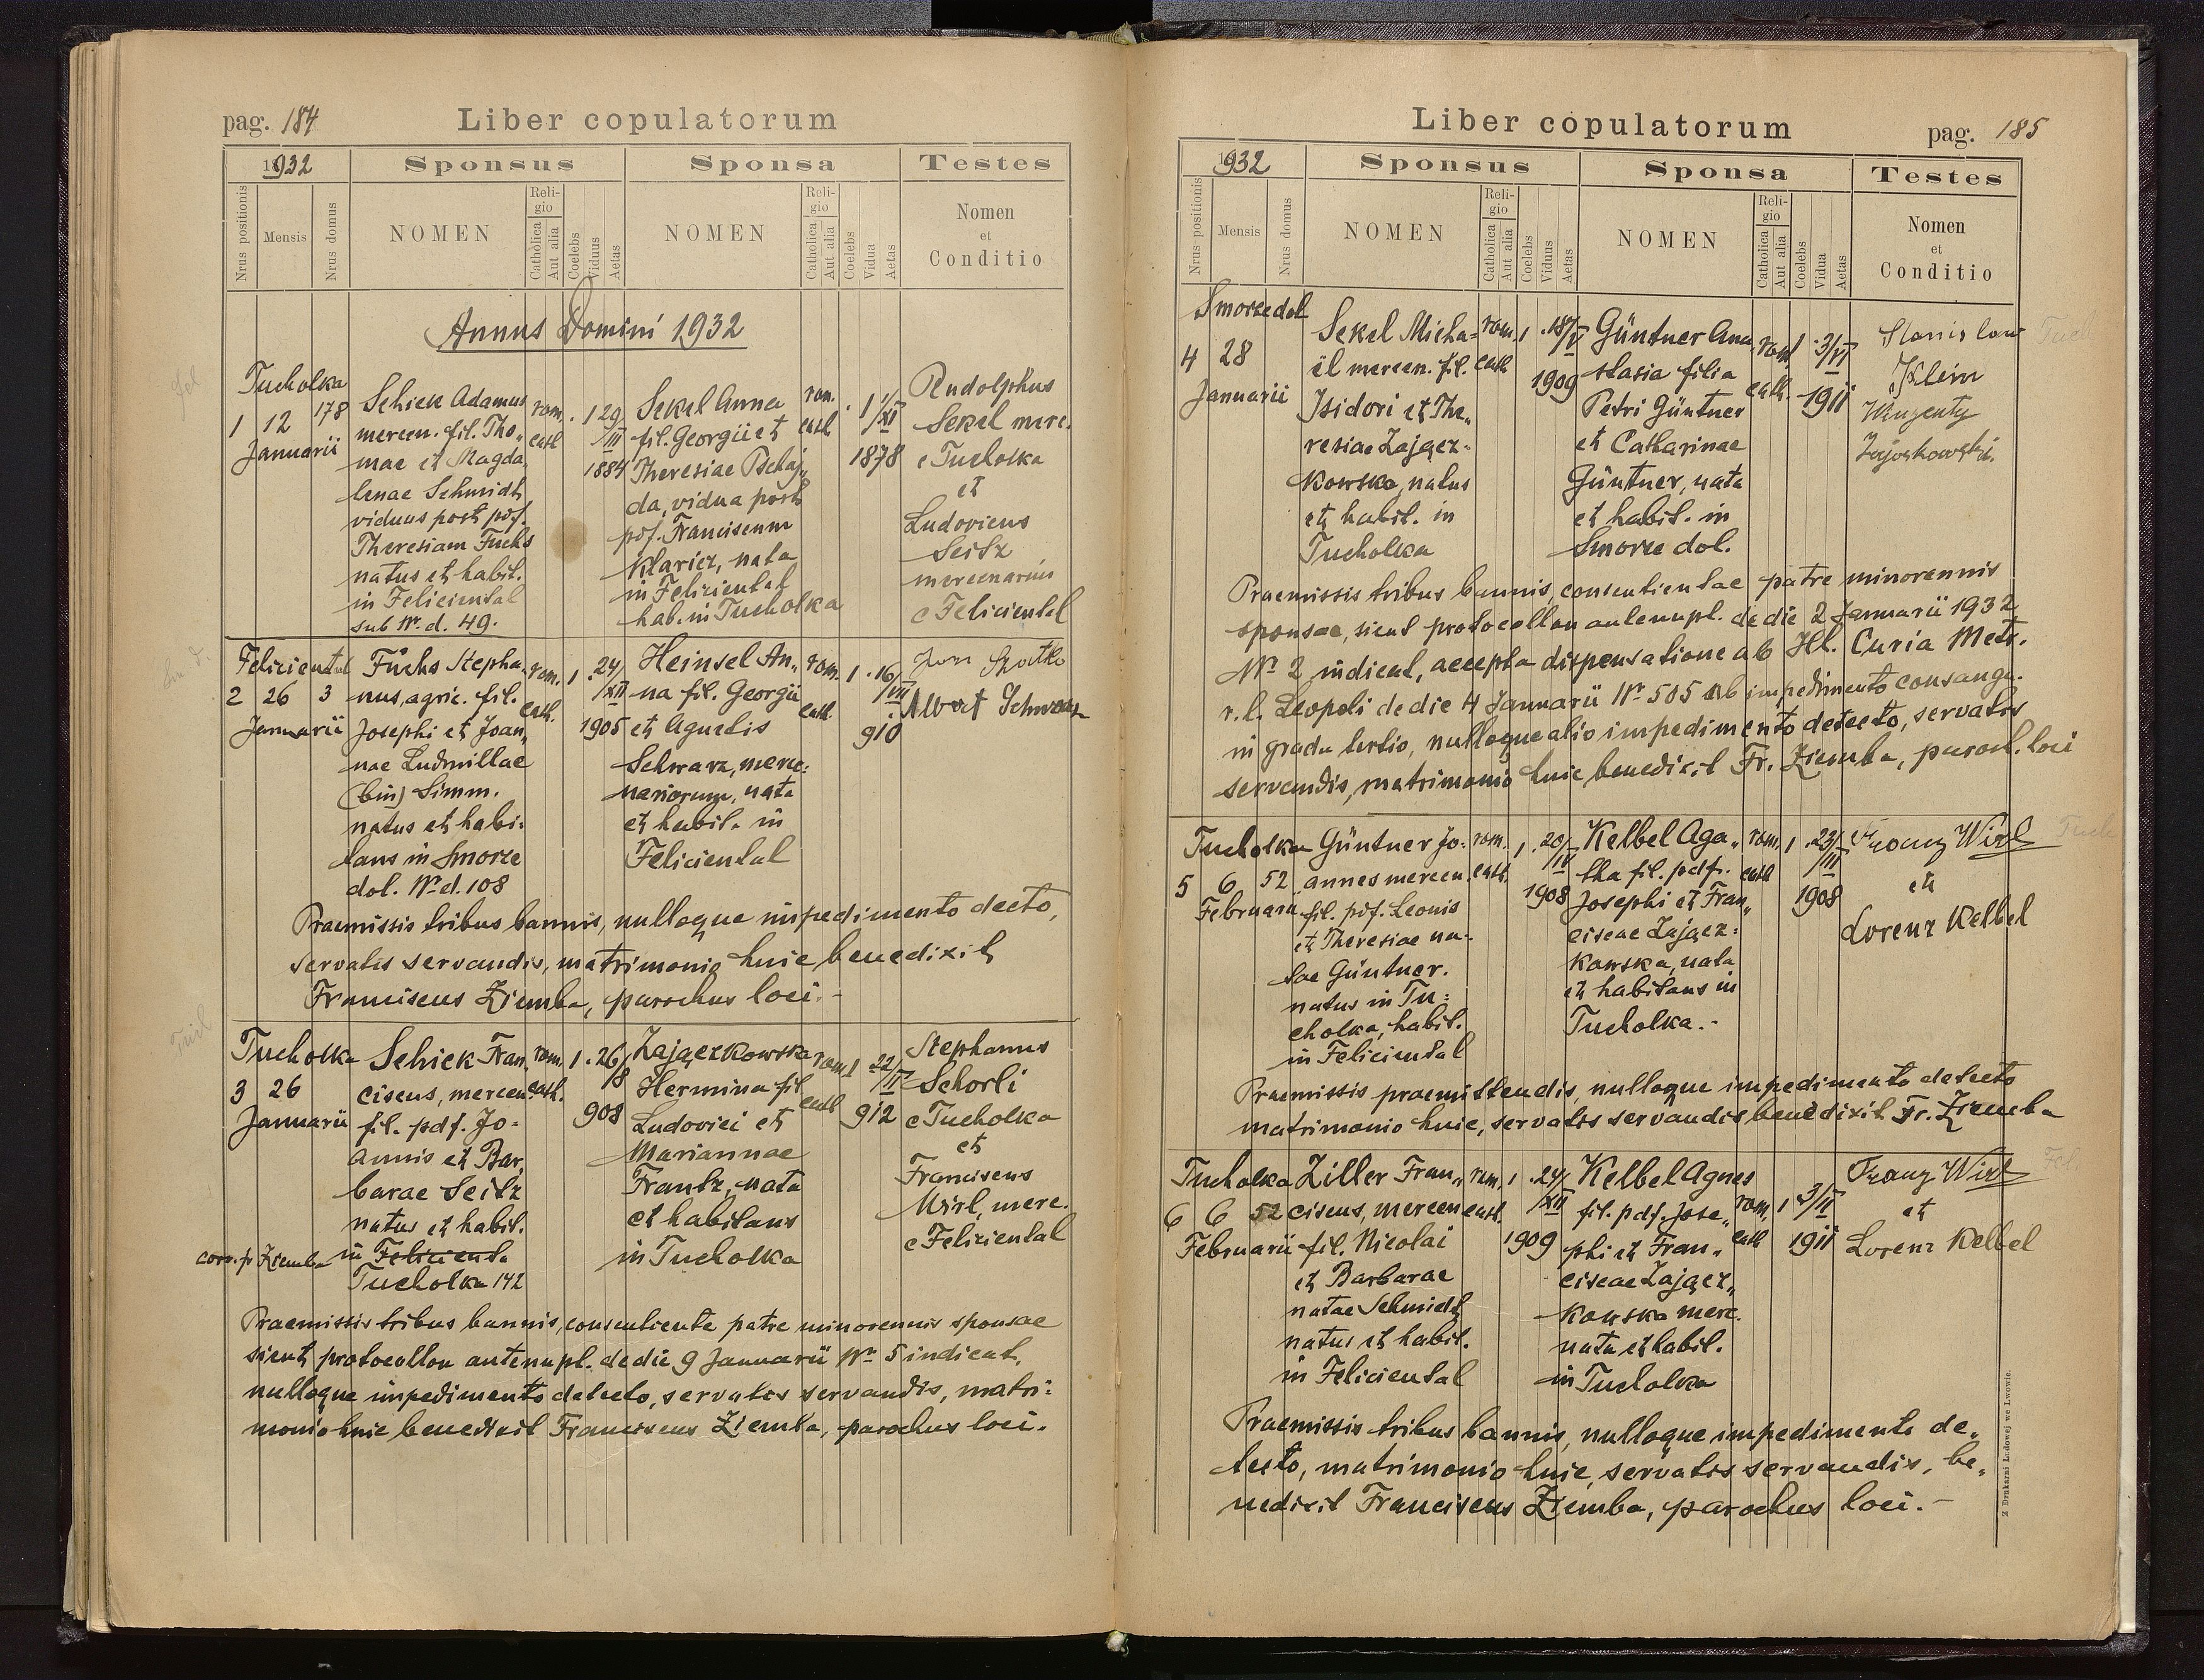 pag. 184
Liber copulatorum
1932
Sponsus
Sponsa
Testes
Nrus positionis
Mensis
Nrus domus
NOMEN
Religio
Catholica
Aut alia
Coelebs
Viduus
Aetas
NOMEN
Religio
Catholica
Aut alia
Coelebs
Vidua
Aetas
Nomen
et
Conditio
Annus Domini 1932
Tucholka
1 12 178
Januarii
Schick Adamus
mercen. fil. Tho„
mae et Magda„
lenae Schmidt,
viduus post pdf.
Theresiam Fuchs
natus et habit.
in Feliciental
sub Nr. d. 49.
rom.
cath
1 29/III
1884
Sekel Anna
fil. Georgii et
Theresiae Pschaj„
da, vidua post
pdf. Franciscum
Klaricz, nata
in Feliciental
hab. in Tucholka
rom.
cath
1 1/XI
1878
Rudolphus
Sekel merc.
e Tucholka
et
Ludovicus
Seitz
mercenarius
e Feliciental
Feliciental
2 26 3
Januarii
Fuchs Stepha„
nus, agric. fil.
Josephi et Joan„
nae Ludmillae
(bin) Simm.
natus et habi:
tans in Smorze
dol. Nr. d. 108
rom.
cath.
1 24/XII
1905
Heinsel An„
na fil. Georgii
et Agnetis
Schwarz, merce:
nariorum, nata
et habit. in
Feliciental
rom.
cath.
1 16/VII
910
Albert Schwarz
Praemissis tribus bannis, nulloque impedimento decto,
servatis servandis, matrimonio huic benedixit
Franciscus Ziemba, parochus loci.-
Tucholka
3 26
Januarii
Schick Fran„
ciscus, mercen.
fil. pdf. Jo-
annis et Bar„
barae Seitz
natus et habit.
corr. fr Ziemba in Felicienta
Tucholka 142
rom.
cath.
1 26/8
908
Zajączkowska
Hermina fil
Ludovici et
Mariannae
Frantz, nata
et habitans
in Tucholka
rom
cath
1 22/II
912
Stephanus
Schorli
e Tucholka
et
Franciscus
Wirl, merc.
e Feliciental
Praemissis tribus bannis, consentiente patre minorennis sponsae
sicut protocollon antenupl. de die 9 Januarii Nr 5 indicat,
nulloque impedimento detecto, servatis servandis, matri:
monio huic benedixit Franciscus Ziemba, parochus loci.
Liber copulatorum
pag. 185
1932
Sponsus
Sponsa
Testes
Nrus positionis
Mensis
Nrus domus
NOMEN
Religio
Catholica
Aut alia
Coelebs
Viduus
Aetas
NOMEN
Religio
Catholica
Aut alia
Coelebs
Vidua
Aetas
Nomen
et
Conditio
Smorze dol
4 28
Januarii
Sekel Micha=
ël mercen. fil.
Isidori et The„
resiae Zającz-
kowska, natus
et habit. in
Tucholka
rom.
cath
1 18/V
1909
Güntner Ana„
stasia filia
Petri Güntner
et Catharinae
Güntner, nata
et habit. in
Smorze dol.
rom.
cath.
1 3/VI
1911
Stanisław
Klein
Zajączkowski.
Praemissis tribus bannis, consentientae patre minorennis
sponsae, sicut protocollon antenupl. de die 2 Januarii 1932
Nr. 2 indicat, accepta dispensatione ab Ill. Curia Metr.
r. l. Leopoli de die 4 Januarii Nr. 505 ab impedimento consangu.
in gradu tertio, nulloque alio impedimento detecto, servatis
servandis, matrimonio huic benedixit Fr. Ziemba, paroch. loci
Tucholka
5 6 52
Februarii
Güntner Jo:
annes mercen.
fil. pdf. Leonis
et Theresiae na-
tae Güntner.
natus in Tu:
cholka, habit.
in Feliciental
rom.
cath.
1 20/IV
1908
Kelbel Aga„
tha fil. pdf.
Josephi et Fran„
ciscae Zającz:
kowska, nata
et habitans in
Tucholka.-
rom.
cath
1 23/III
1908
Franz Wirl
et
Lorenz Kelbel
Praemissis praemittendis, nulloque impedimento detecto
matrimonio huic, servatis servandis benedixit Fr. Ziemba
Tucholka
6 6 52
Februarii
Ziller Fran„
ciscus, mercen
fil. Nicolai
et Barbarae
natae Schmidt,
natus et habit.
in Feliciental
rom.
cath.
1 24/XII
1909
Kelbel Agnes
fil. pdf. Jose„
phi et Fran„
ciscae Zającz„
kowska merc.
nata et habit.
in Tucholka
rom.
cath
1 3/II
1911
Franz Wirl
et
Lorenz Kelbel
Praemissis tribus bannis, nulloque impedimento de„
tecto, matrimonio huic, servatis servandis, be„
nedixit Franciscus Ziemba, parochus loci.-
Z Drukarni Ludowej we Lwowie.